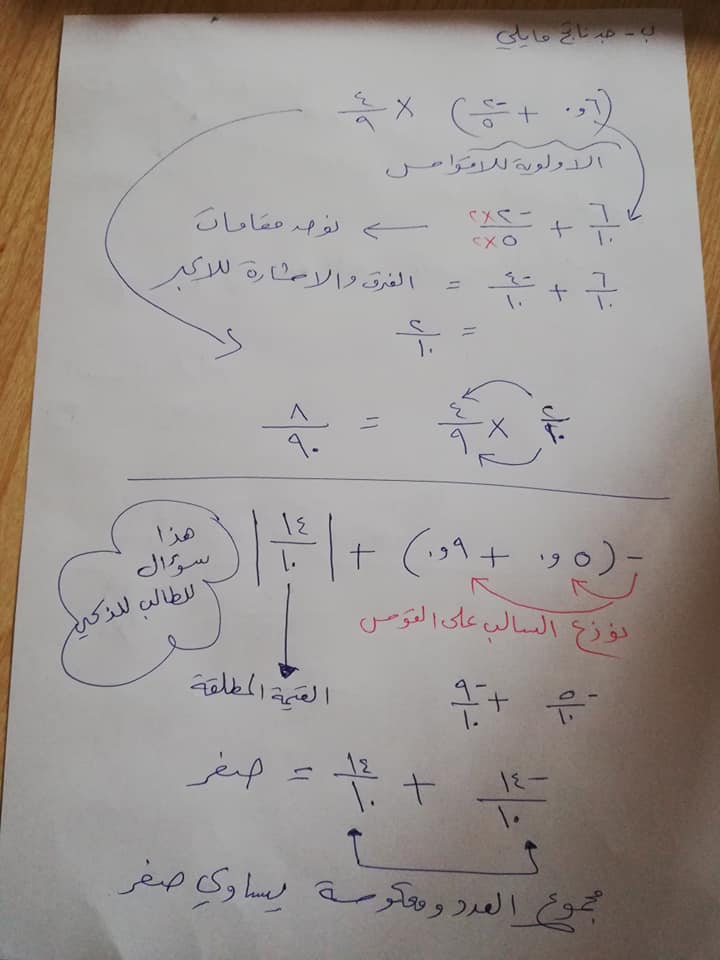 ب - جد ناتج مايلي
(٠,٦ + -٢/٥) × ٤/٩
الاولوية للاقواس
٦/١٠ + -٢×٢/٥×٢ ← نوحد مقامات
٦/١٠ + -٤/١٠ = الفرق والاشارة للاكبر
= ٢/١٠
٢/١٠ × ٤/٩ = ٨/٩٠
-(٠,٥ + ٠,٩) + |١٤/١٠|
هذا
سؤال
للطالب للذكي
نوزع السالب على القوس
القيمة المطلقة
-٥/١٠ + -٩/١٠
-١٤/١٠ + ١٤/١٠ = صفر
مجموع العدد ومعكوسة يساوي صفر